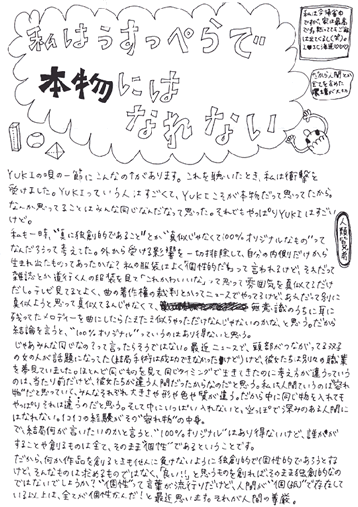 私はうすっぺらで
本物には
なれない
YUKIの唄の一節にこんなのがあります。これを聴いたとき、私は衝撃を
受けました。YUKIっていう人はすごくて、YUKIこそが本物だって思ってたから。
なんか思ってることはみんな同じなんだなって思った。それでもやっぱりYUKIはすごい
けど。
私も一時、“真に独創的であること”とか“真似じゃなくて100%オリジナルなもの”って
なんだろうって考えてた。外から受ける影響を一切排除して、自分の内側だけから
生まれ出たものってあったかな？私の服装はよく個性的だねって言われるけど、そんだって
雑誌とか道行く人の服装を見て“これかわいいな”って思って雰囲気を真似てるだけ
だし。テレビ見てるとよく、曲の著作権の裁判とかってニュースでやってるけど、あんなだって別に
真似ようと思って真似てるんじゃなくて、無意識のうちに耳に
残ってたメロディーを曲にしたらたまたま似ちゃっただけなんじゃないのかな、と思う。だから
結論を言うと、“100%オリジナル”っていうのはあり得ないと思う。
じゃあみんな同じなの？って言ったらそうではない。最近ニュースで、頭部がつながってる双子
の女の人が話題になった(結局手術は成功できなかったけど)けど、彼女たちは別々の職業
を夢見ていました。ほとんど同じものを見て同じタイミングで生きてきたのに考え方が違うっていう
のは、当たり前だけど、彼女たちが違う人間だったからなのだと思う。私は人間っていうのは“容れ
物”だと思っていて、みんなそれぞれ大きさや形や色や質が違う。だから中に同じ物を入れても
やっぱりそれは違うのだと思う。そして中にいっぱい入れないと、空っぽで深みのある人間に
はなれない。1コ1コの経験がその“容れ物”の中身。
で、結局何が言いたいのかと言うと、“100%オリジナル”はあり得ないけど、誰かが
することや創るものは全て、そのまま“個性”であるということです。
だから、何か作品を創るときもせんに負けないように独創的で個性的であろうとする
けど、そんなものはもとめるものではなく、“良い!!”と思うものを創れば、そのまま独創的なの
ではないでしょうか？“個性”って言葉が流行りだけど、人間が“個(山)”で存在して
いる以上は、全てが個性なんだ！と最近思います。それが人間の尊厳。